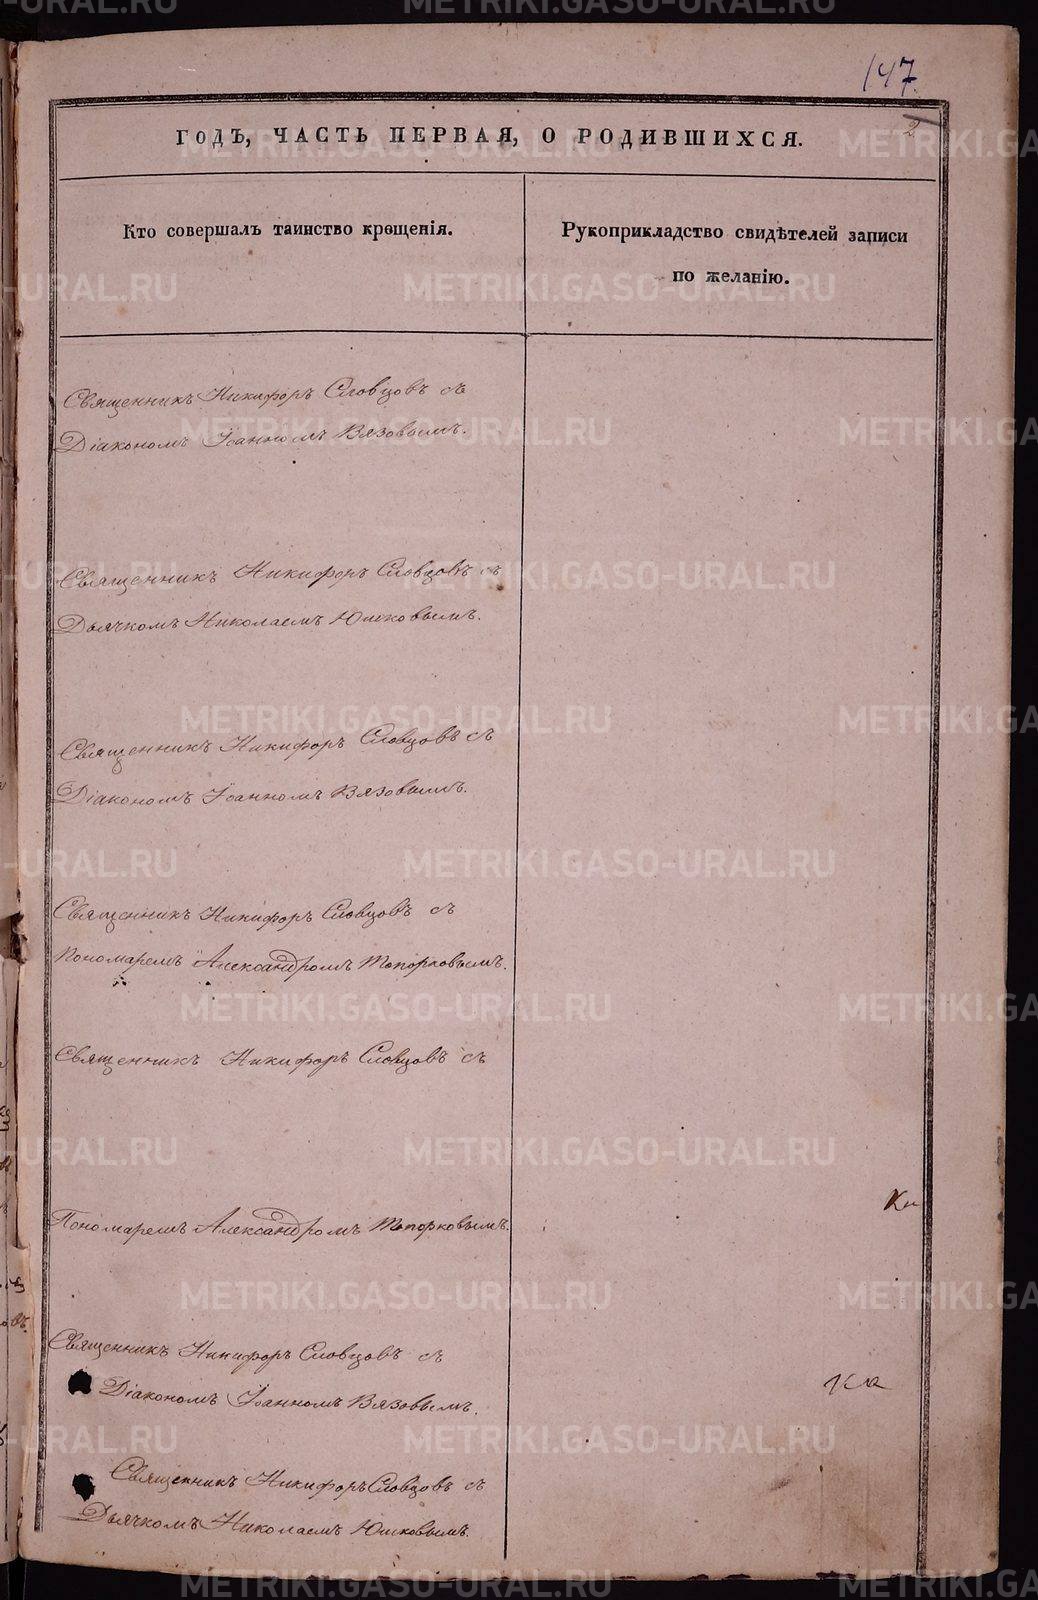 147.
2
ГОДЪ, ЧАСТЬ ПЕРВАЯ, О РОДИВШИХСЯ.
Кто совершалъ таинство крещенія.
Рукоприкладство свидѣтелей записи
по желанію.
Священникъ Никифоръ Словцовъ съ
Діакономъ Іоанномъ Вязовымъ.
Священникъ Никифоръ Словцовъ съ
Дьячкомъ Николаемъ Юшковымъ.
Священникъ Никифоръ Словцовъ съ
Діакономъ Іоанномъ Вязовымъ.
Священникъ Никифоръ Словцовъ съ
Пономаремъ Александромъ Топорковымъ.
Священникъ Никифоръ Словцовъ съ
Пономаремъ Александромъ Топорковымъ.
Священникъ Никифоръ Словцовъ съ
Діакономъ Іоанномъ Вязовымъ.
Священникъ Никифоръ Словцовъ съ
Дьячкомъ Николаемъ Юшковымъ.
METRIKI.GASO-URAL.RU